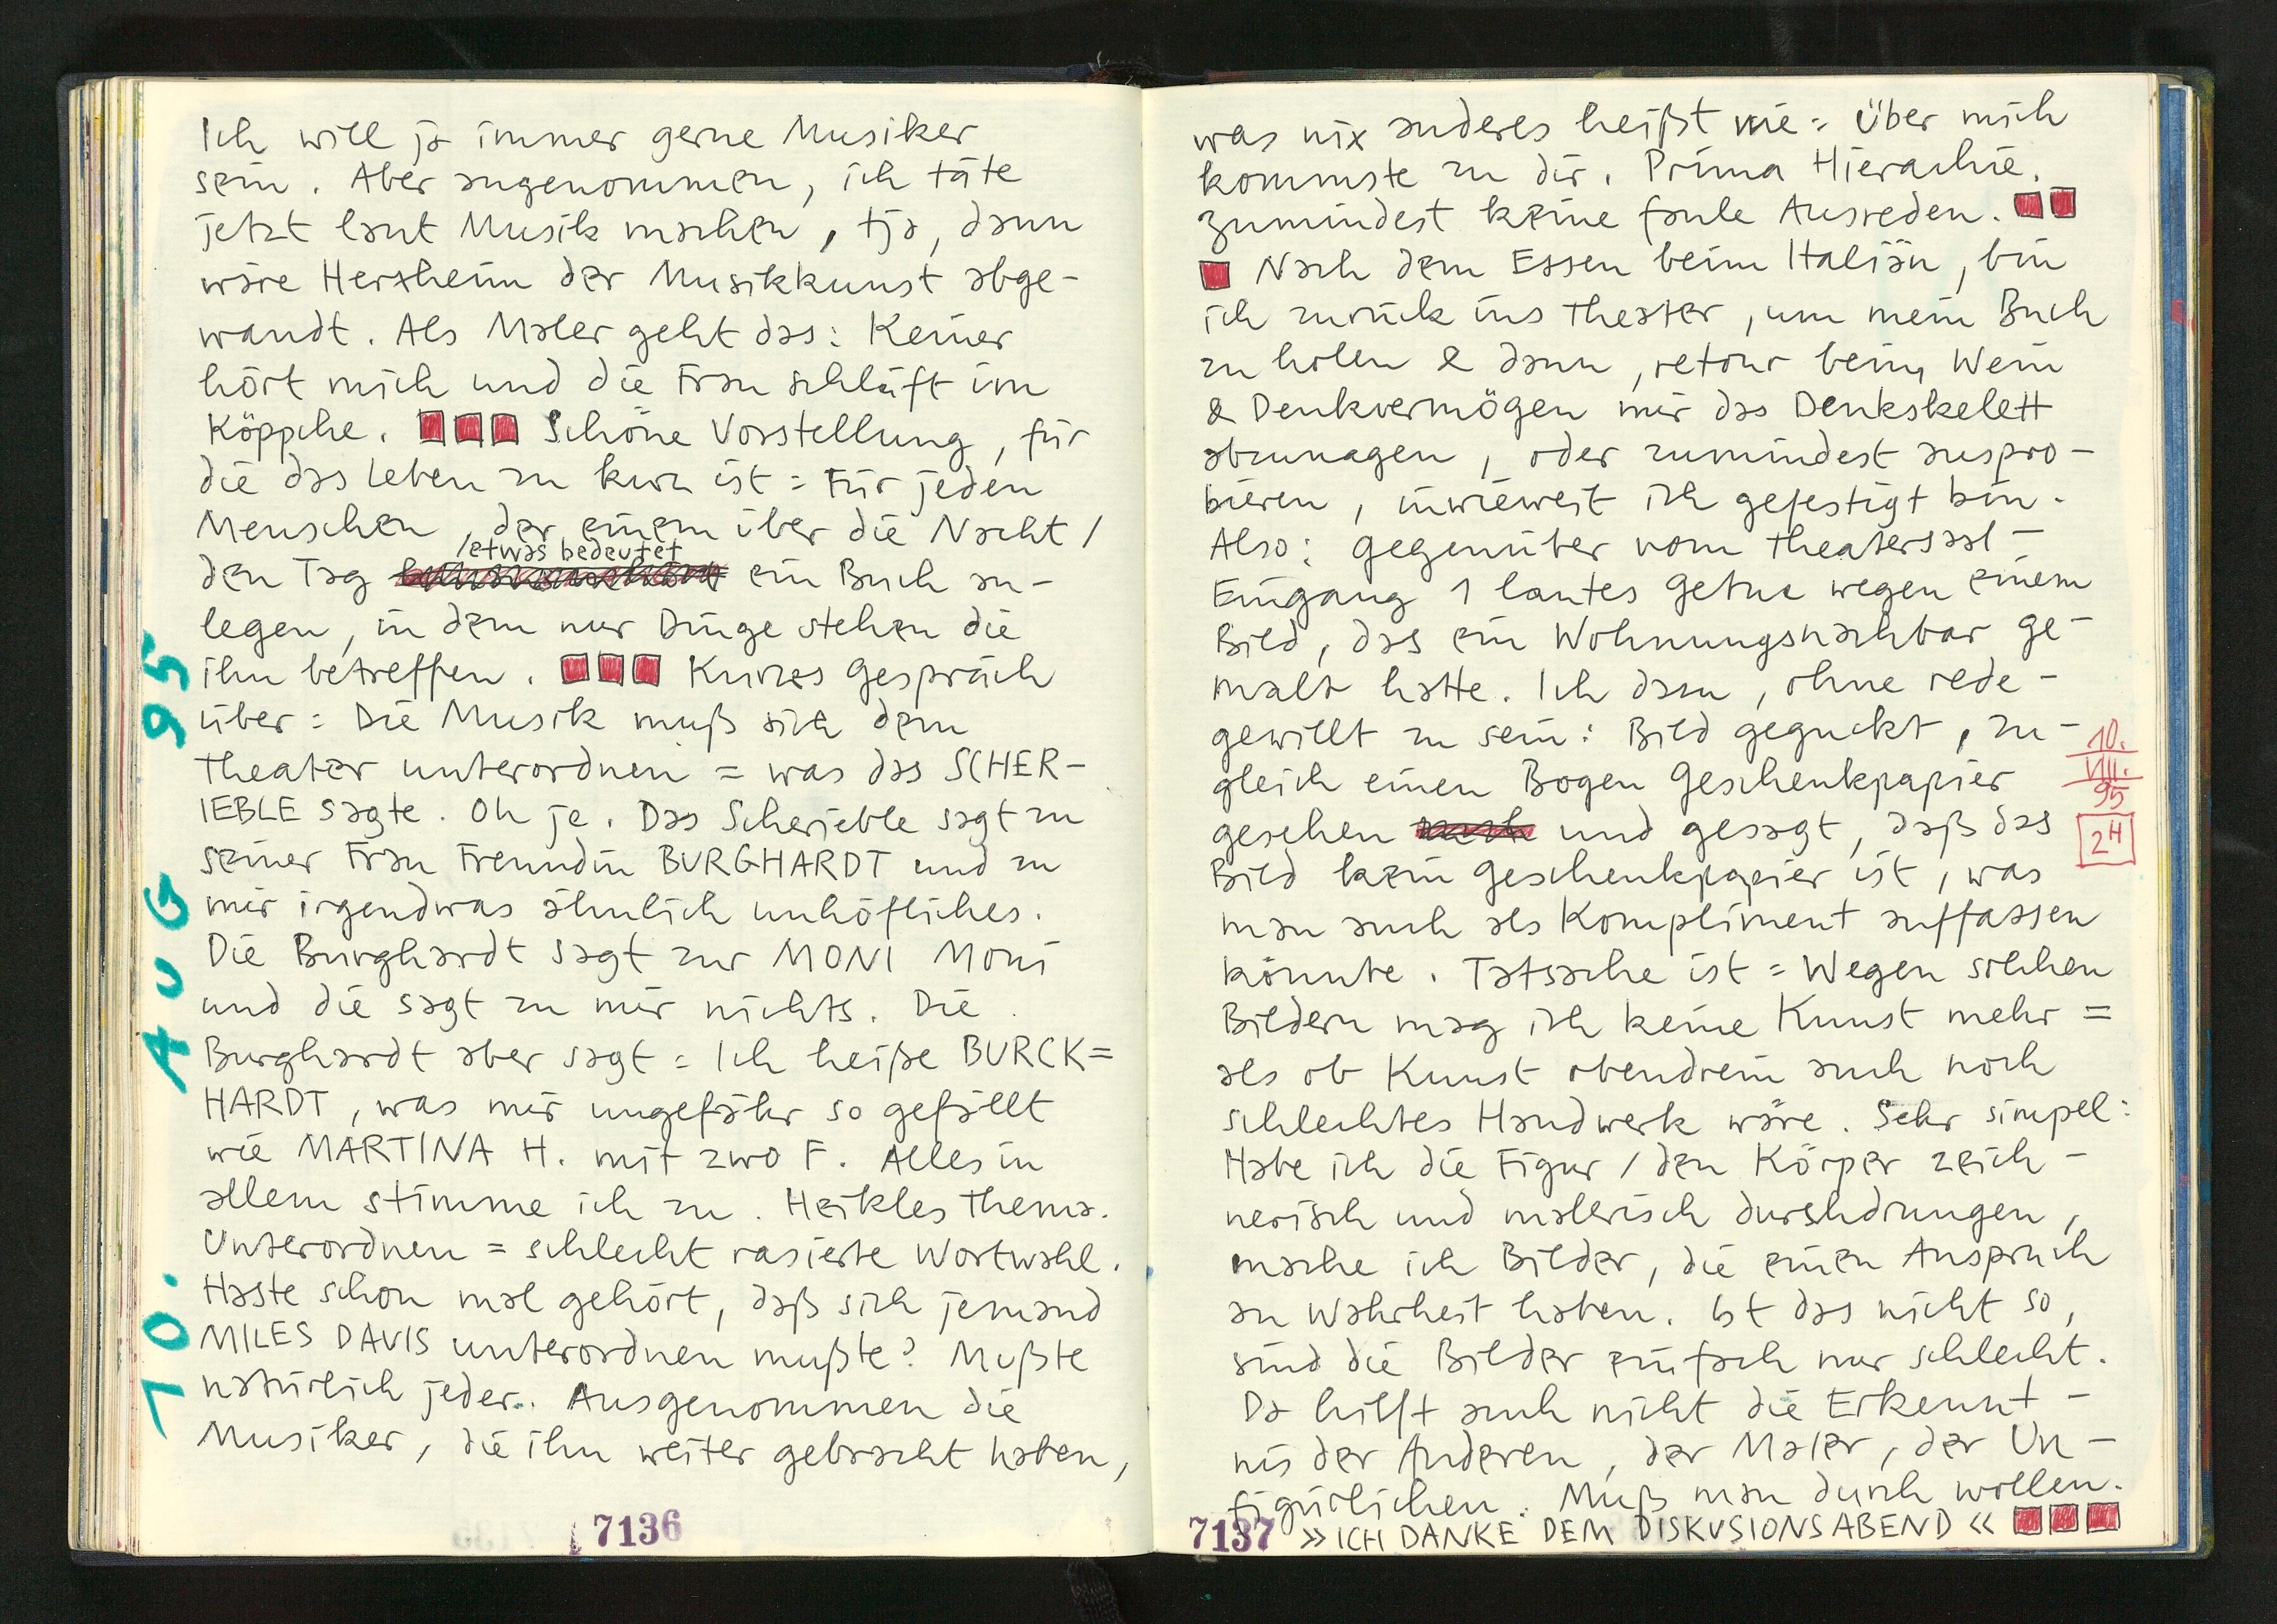 Ich will ja immer gerne Musiker
sein. Aber angenommen, ich täte
jetzt laut Musik machen, tja, dann
wäre Herxheim der Musikkunst abge-
wandt. Als Maler geht das: Keiner
hört mich und die Frau schläft im
Köppche. Schöne Vorstellung, für
die das Leben zu kurz ist = Für jeden
Menschen, der einem über die Nacht /
/etwas bedeutet
den Tag ein Buch an-
legen, in dem nur Dinge stehen die
ihn betreffen. Kurzes Gespräch
über = Die Musik muß sich dem
Theater unterordnen = was das SCHER-
IEBLE sagte. Oh je. Das Scherieble sagt zu
seiner Frau Freundin BURGHARDT und zu
mir irgendwas ähnlich unhöfliches.
Die Burghardt sagt zur MONI Moni
und die sagt zu mir nichts. Die
Burghardt aber sagt = Ich heiße BURCK=
HARDT, was mir ungefähr so gefällt
wie MARTINA H. mit zwo F. Alles in
allem stimme ich zu. Heikles Thema.
Unterordnen = schlecht rasierte Wortwahl.
Haste schon mal gehört, daß sich jemand
MILES DAVIS unterordnen mußte? Mußte
natürlich jeder. Ausgenommen die
Musiker, die ihn weiter gebracht haben,
10. AUG 95
7136
was nix anderes heißt wie = Über mich
kommste zu dir. Prima Hierachie.
Zumindest keine faule Ausreden.
Nach dem Essen beim Italiän, bin
ich zurück ins Theater, um mein Buch
zu holen & dann, retour beim Wein
& Denkvermögen mir das Denkskelett
abzunagen, oder zumindest auspro-
bieren, inwieweit ich gefestigt bin.
Also: Gegenüber vom Theatersaal-
Eingang 1 lautes Getue wegen einem
Bild, das ein Wohnungsnachbar ge-
malt hatte. Ich dazu, ohne rede-
gewillt zu sein: Bild geguckt, zu-
gleich einen Bogen Geschenkpapier
gesehen und gesagt, daß das
Bild kein Geschenkpapier ist, was
man auch als Kompliment auffassen
könnte. Tatsache ist = Wegen solchen
Bildern mag ich keine Kunst mehr =
als ob Kunst obendrein auch noch
schlechtes Handwerk wäre. Sehr simpel:
Habe ich die Figur / den Körper zeich-
nerisch und malerisch durchdrungen,
mache ich Bilder, die einen Anspruch
an Wahrheit haben. Ist das nicht so,
sind die Bilder einfach nur schlecht.
Da hilft auch nicht die Erkennt-
nis der Anderen, der Maler, der Un-
figürlichen. Muß man durch wollen.
»ICH DANKE DEM DISKUSIONSABEND«
10.
VIII.
95
2H
7137